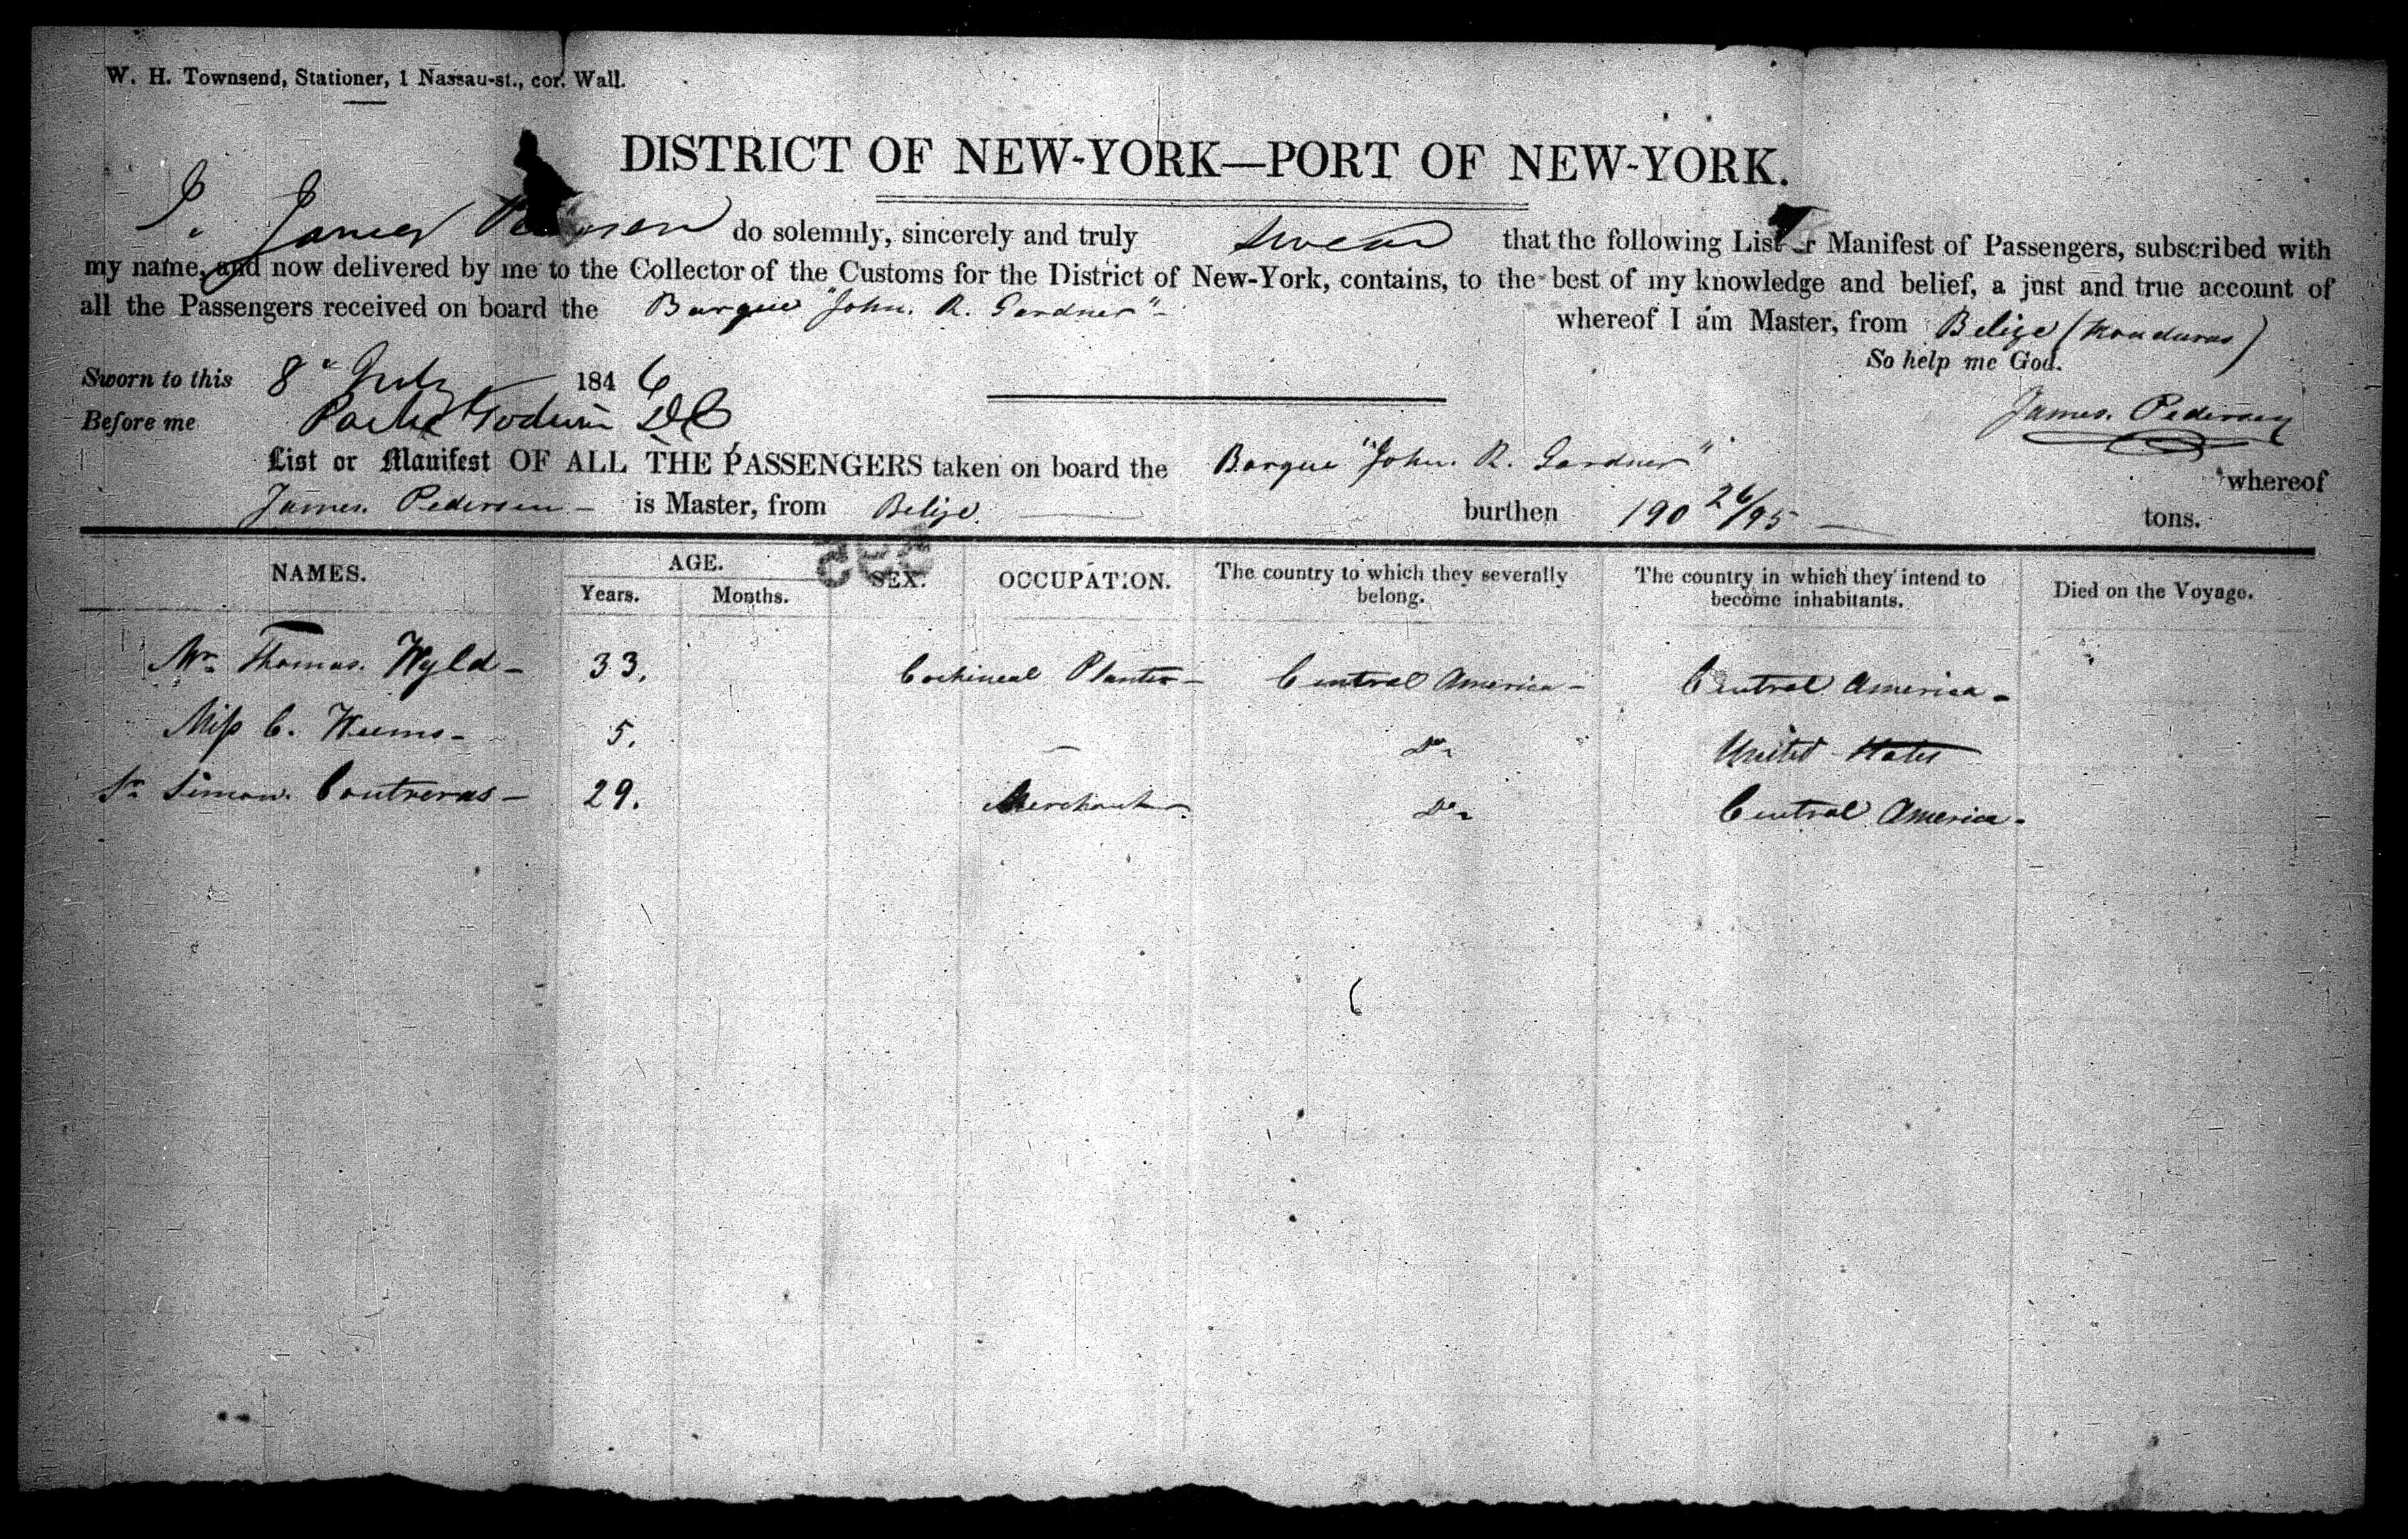 W. H. Townsend, Stationer, 1 Nassau-st., cor. Wall.
DISTRICT OF NEW-YORK—PORT OF NEW-YORK.
I, James Pedersen do solemnly, sincerely and truly swear that the following List or Manifest of Passengers, subscribed with
my name, and now delivered by me to the Collector of the Customs for the District of New-York, contains, to the best of my knowledge and belief, a just and true account of
all the Passengers received on board the Barque "John. R. Gardner" whereof I am Master, from Belize (Honduras)
So help me God.
Sworn to this 8" July 1846
Before me Parke Godwin DC
James. Pedersen
List or Manifest OF ALL THE PASSENGERS taken on board the Barque "John. R. Gardner" whereof
James. Pedersen is Master, from Belize. burthen 190 26/95 tons.
NAMES. AGE. SEX. OCCUPATION. The country to which they severally belong. The country in which they intend to become inhabitants. Died on the Voyage.
Years. Months.
Mr Thomas. Wyld 33. Cochineal Planter Central America Central America
Miss C. Weems 5. — Do United States
Sr Simon. Contreras 29. Merchant Do Central America